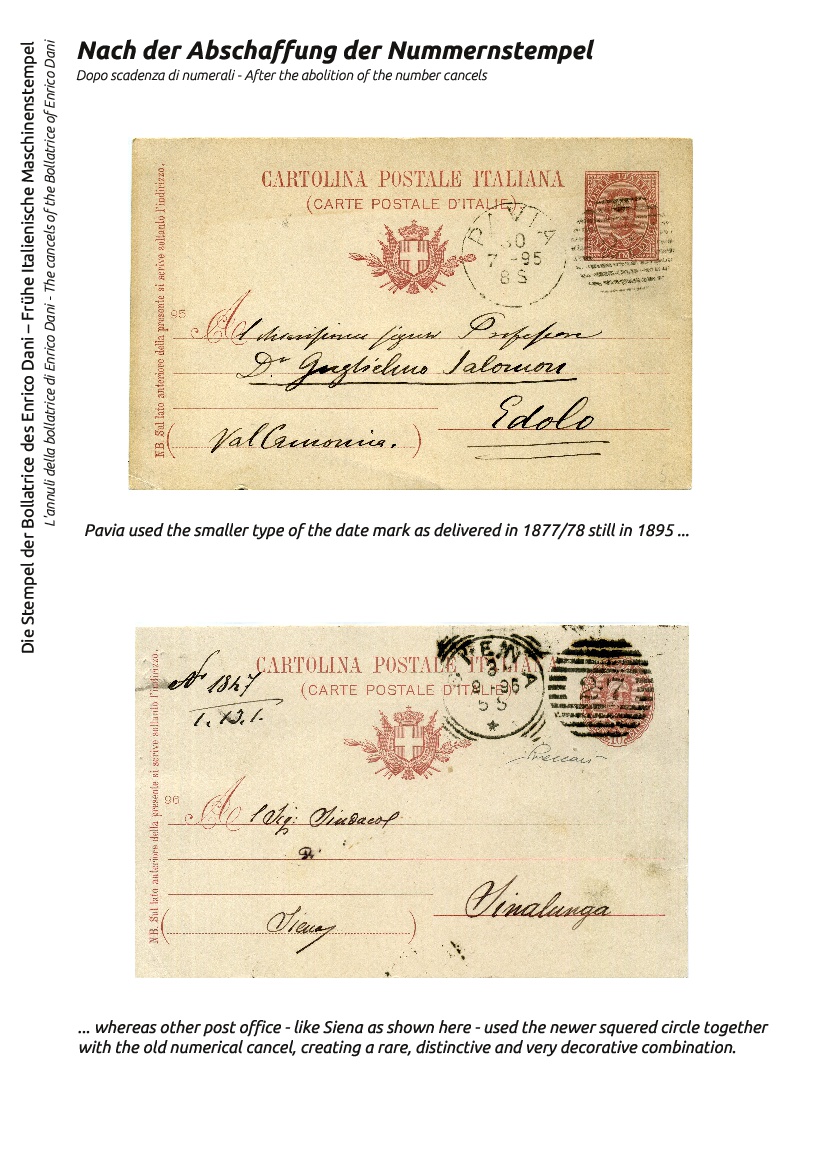 Nach der Abschaffung der Nummernstempel
Dopo scadenza di numerali - After the abolition of the number cancels
Die Stempel der Bollatrice des Enrico Dani – Frühe Italienische Maschinenstempel
L'annuli della bollatrice di Enrico Dani - The cancels of the Bollatrice of Enrico Dani
CARTOLINA POSTALE ITALIANA
(CARTE POSTALE D'ITALIE)
PAVIA
30
7 -95
8 S
NB. Sul lato anteriore della presente si scrive soltanto l'indirizzo.
95
A
Professore
Dr Guglielmo Salomon
Edolo
(Val Camonica.)
Pavia used the smaller type of the date mark as delivered in 1877/78 still in 1895 ...
No 1847
1. 13. 1.
CARTOLINA POSTALE ITALIANA
(CARTE POSTALE D'ITALIE)
SIENA
31
-96
5 S
27
10
NB. Sul lato anteriore della presente si scrive soltanto l'indirizzo.
96
Al Sig: Sindaco
Di
Sinalunga
(Siena)
... whereas other post office - like Siena as shown here - used the newer squered circle together
with the old numerical cancel, creating a rare, distinctive and very decorative combination.